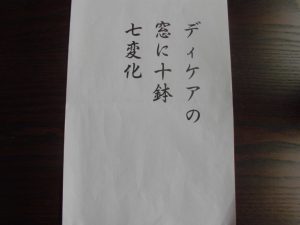 ディケアの
窓に十鉢
七変化